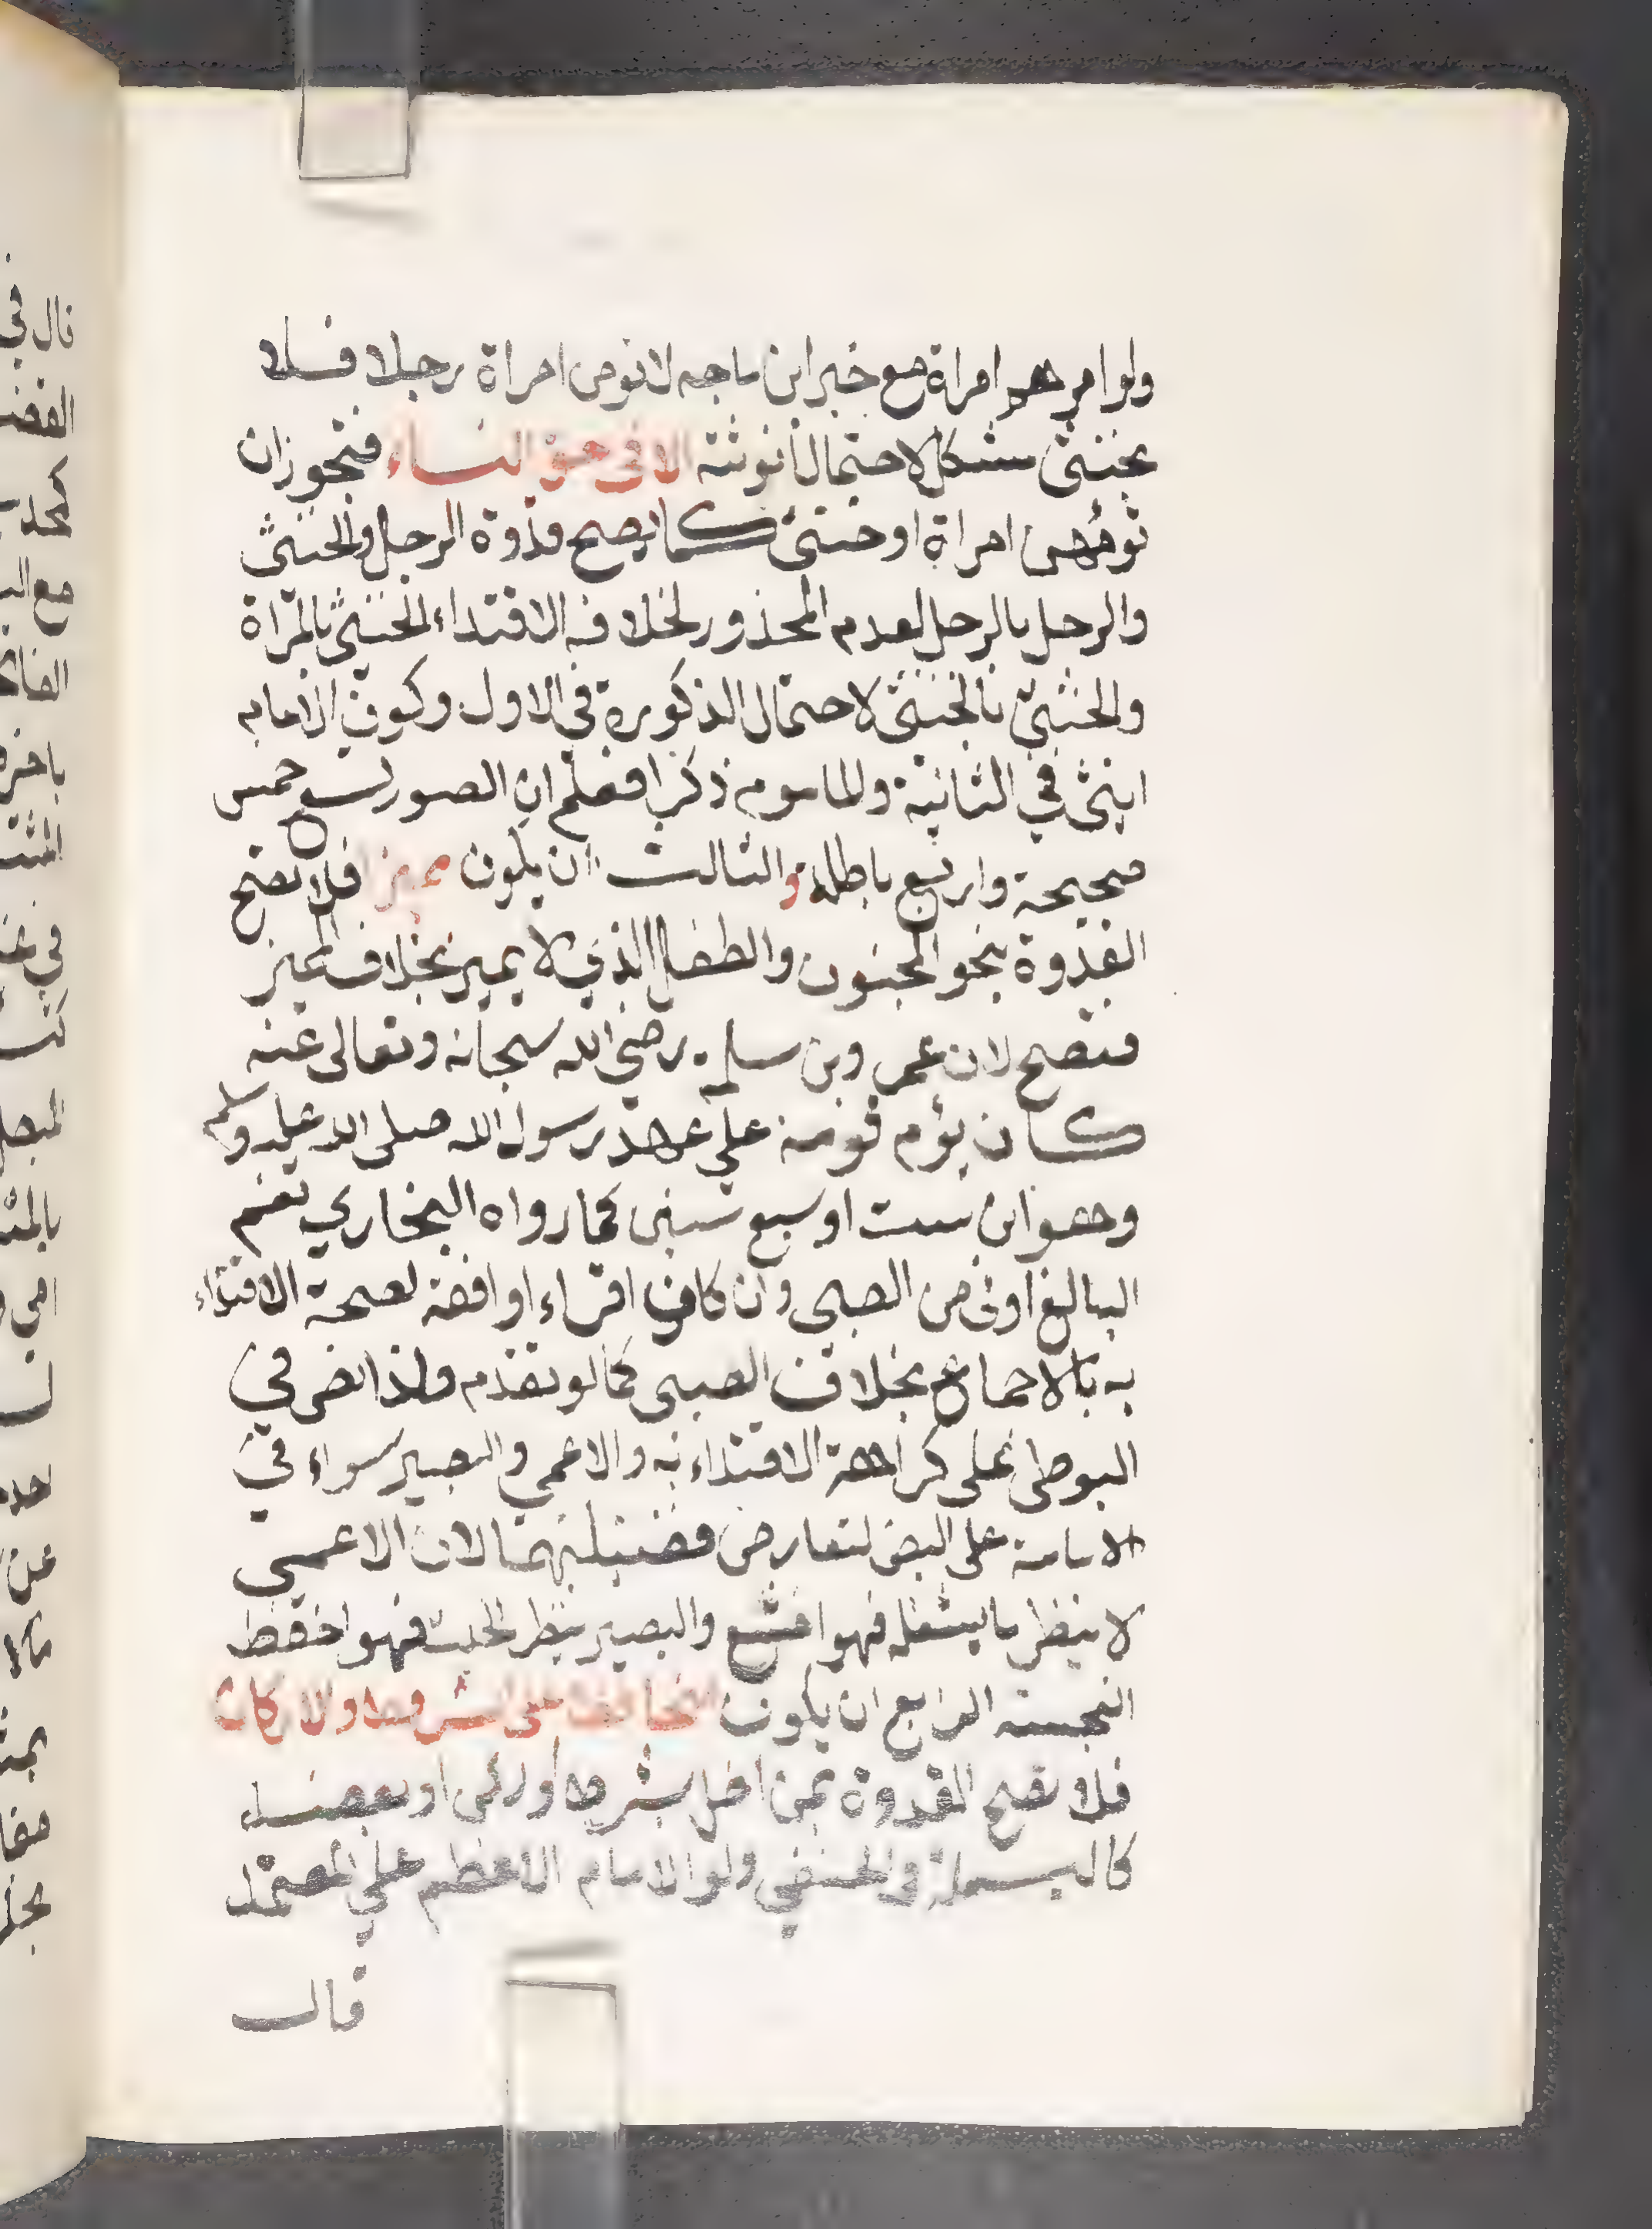 ولو امرهم امراة مع خبر ابن ماجه لا تؤمن امراة رجلا فلا
بخنثى مشكل لاحتمال انوثته الا في حق النساء فتجوز ان
تؤمهن امراة او خنثى كما يصح قدوة الرجل والخنثى
والرجل بالرجل لعدم المحذور لخلافه الاقتداء الخنثى بالمراة
والخنثى بالخنثى لاحتمال الذكورة في الاول وكون الامام
انثى في الثانية والماموم ذكرا فعلم ان الصور تسع خمس
صحيحة واربع باطلة والثالث ان يكون مميزا فلا تصح
القدوة بنحو المجنون والطفل الذي لا يميز بخلاف المميز
فتصح لان عمرو بن سلمه رضي الله سبحانه وتعالى عنه
كان يؤم قومه على عهد رسول الله صلى الله عليه وسلم
وهو ابن ست او سبع سنين كما رواه البخاري نعم
البالغ اولى من الصبي وان كان اقراء او افقه لصحة الاقتداء
به بالاجماع بخلاف الصبي كما لو تقدم ولذا نص في
البوطي على كراهة الاقتداء به والاعمى والبصير سواء في
الامامة على النص لتعارض فضيلتهما لان الاعمى
لا ينظر ما يشغله فهو اخشع والبصير ينظر الخبث فهو احفظ
النجسة الرابع ان يكون محافظا على الشروط والاركان
فلا تصح القدوة بمن اخل بشرط او ركن او بعضه
كالبسملة في الحنفي ولو الامام الاعظم على المعتمد
قال